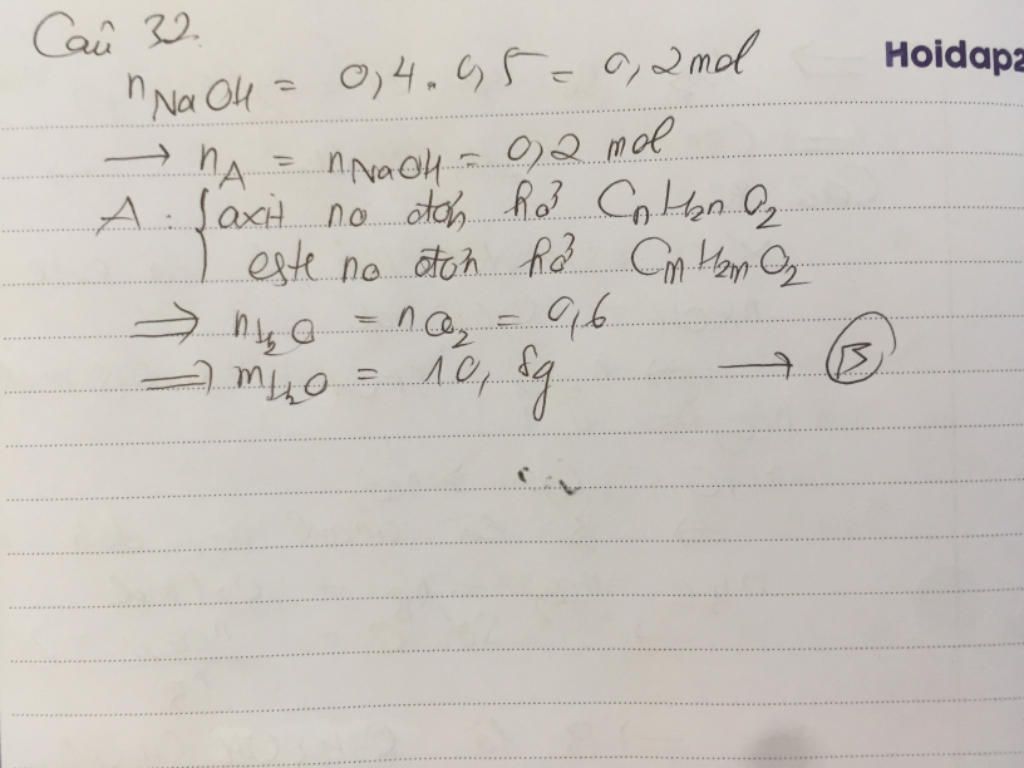 Câu 32.
Hoidap2
n NaOH = 0,4 . 0,5 = 0,2 mol
→ n A = n NaOH = 0,2 mol
A : { axit no đơn hở CnH2nO2
este no đơn hở CmH2mO2
⇒ n H2O = n CO2 = 0,6
⇒ m H2O = 10,8g → B